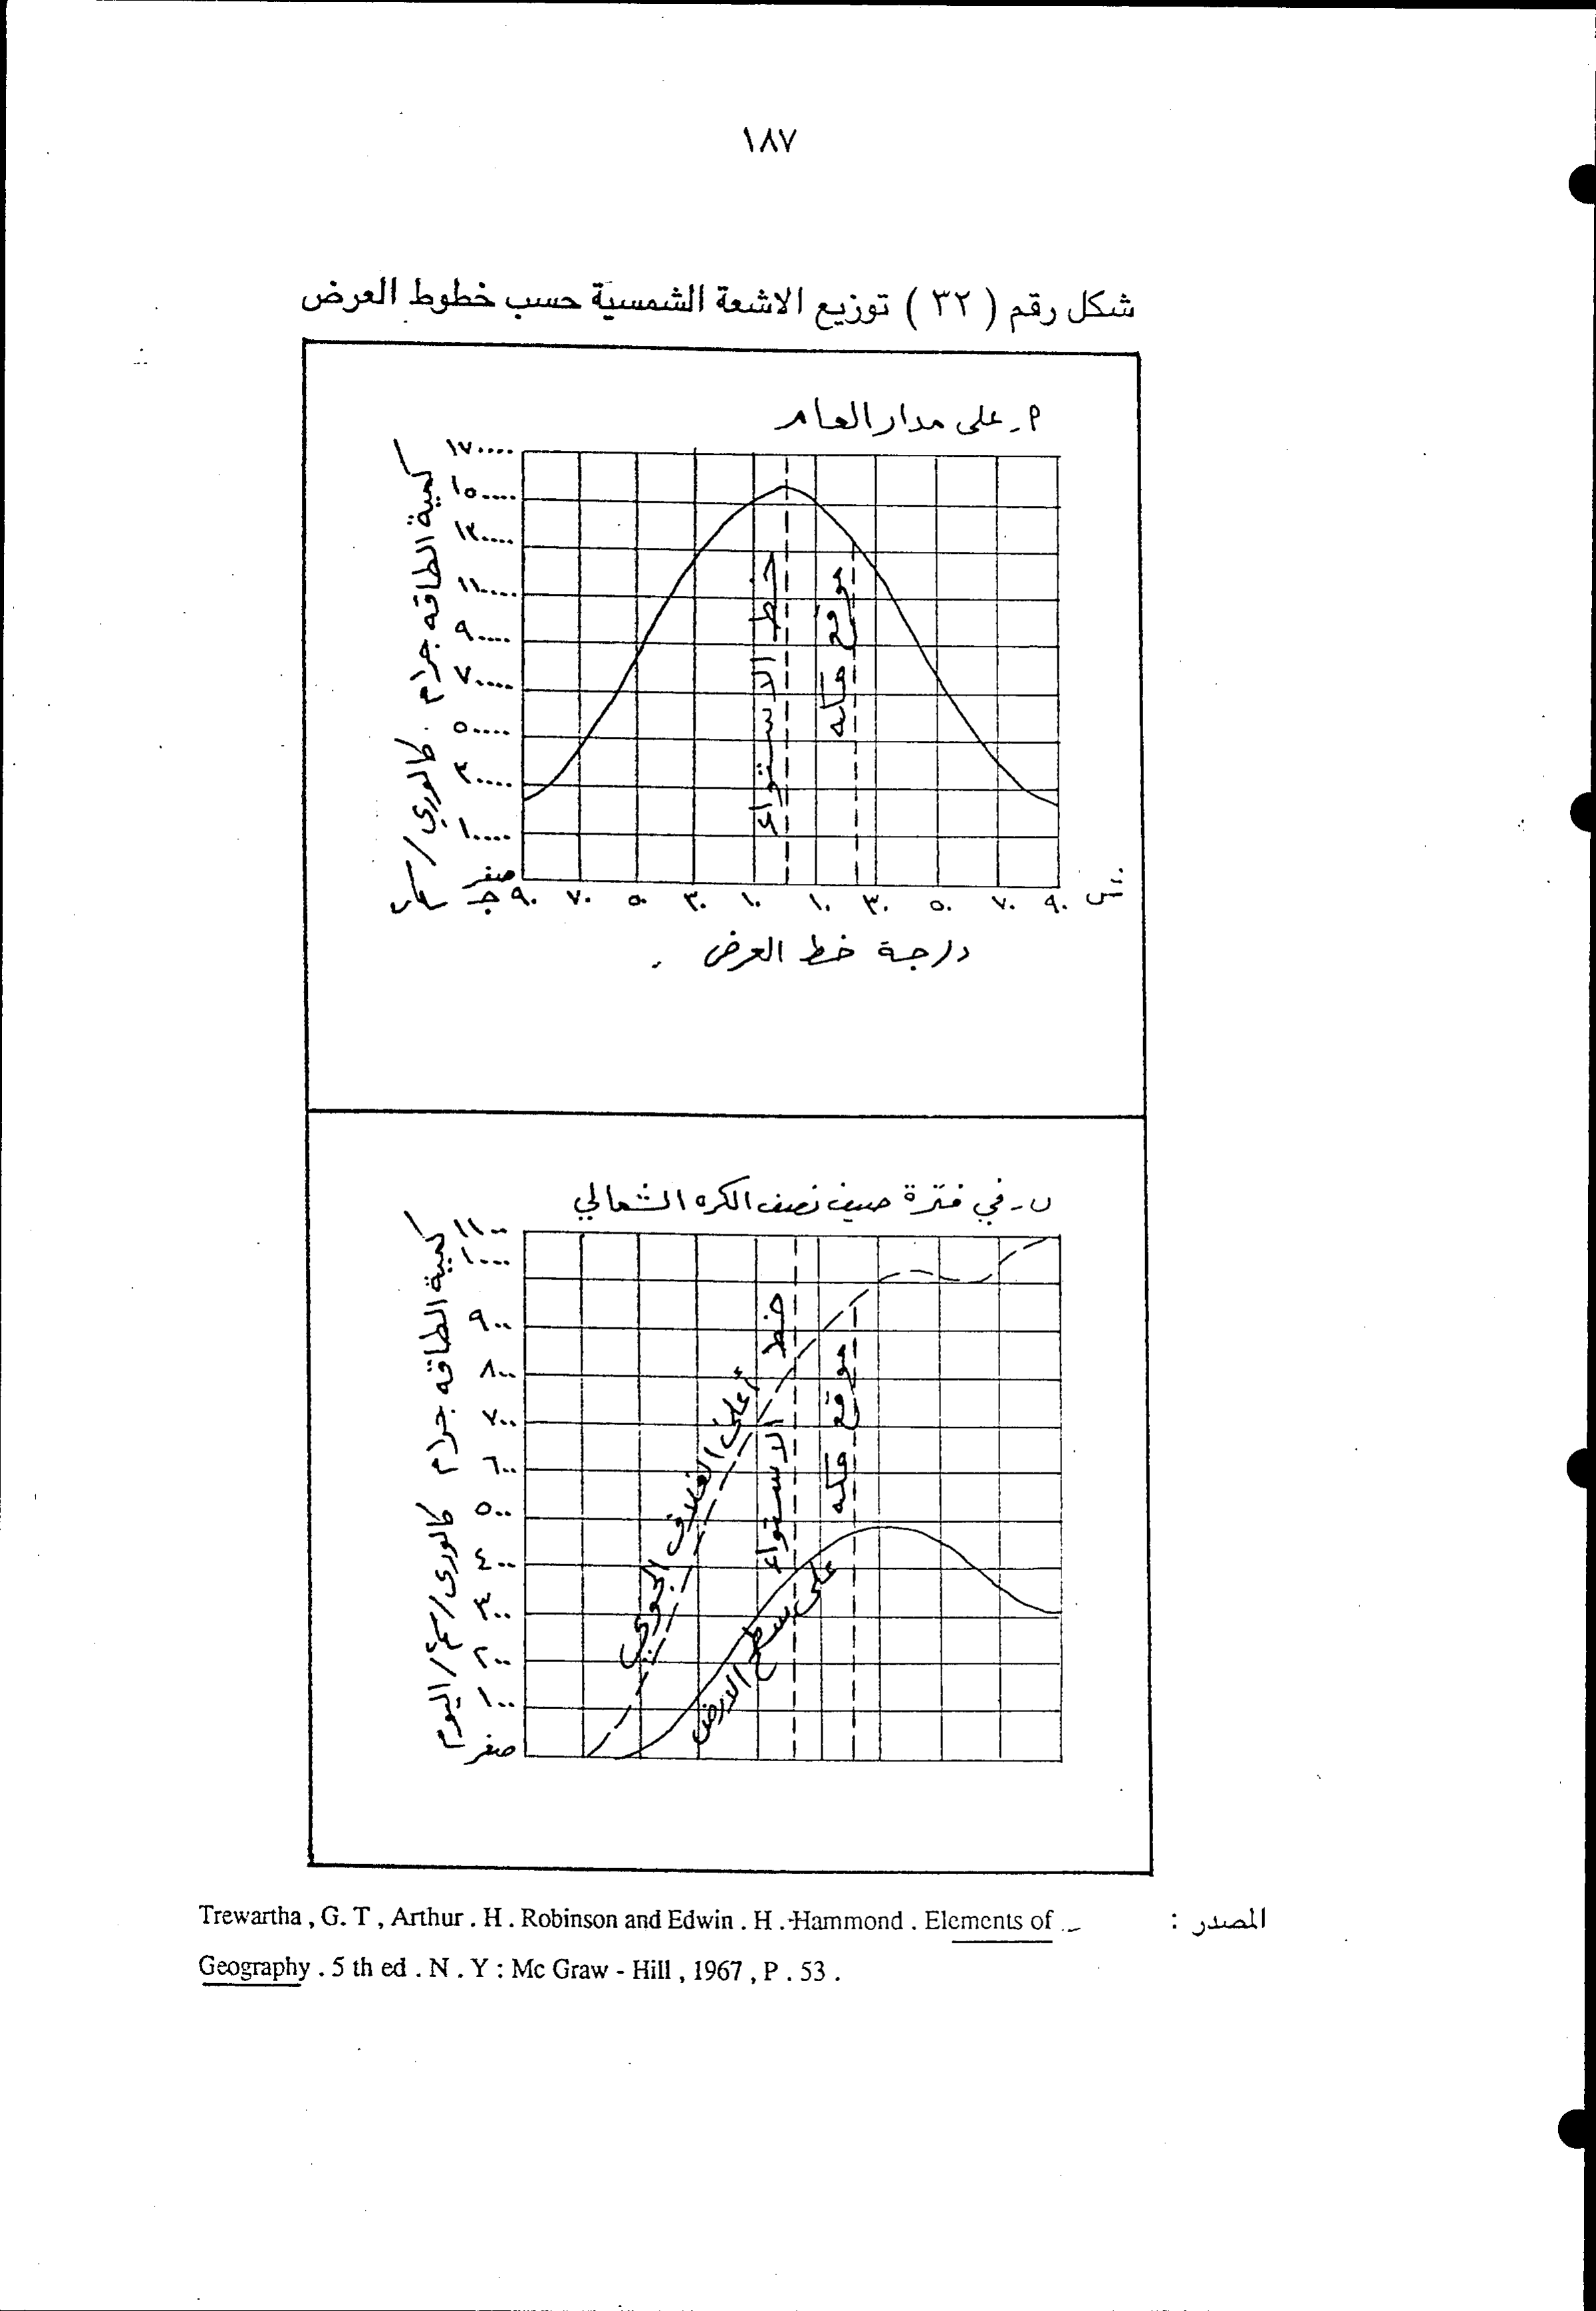 ١٨٧
شكل رقم ( ٣٢ ) توزيع الاشعة الشمسية حسب خطوط العرض
٩ـ على مدار العام
كمية الطاقه جرام . كالوري/سم٢
١٧٠٠٠٠
١٥٠٠٠٠
١٣٠٠٠٠
١١٠٠٠٠
٩٠٠٠٠
٧٠٠٠٠
٥٠٠٠٠
٣٠٠٠٠
١٠٠٠٠
صفر
خط الاستواء
موقع مكه
جـ ٩٠ ٧٠ ٥٠ ٣٠ ١٠ ١٠ ٣٠ ٥٠ ٧٠ ٩٠ ش
درجة خط العرض .
ب ـ في فترة صيف نصف الكره الشمالي
كمية الطاقه جرام كالورى/سم٢/اليوم
١١٠٠
١٠٠٠
٩٠٠
٨٠٠
٧٠٠
٦٠٠
٥٠٠
٤٠٠
٣٠٠
٢٠٠
١٠٠
صفر
أعلى الغلاف الجوي
خط الاستواء
موقع مكه
على سطح الارض
المصدر :
Trewartha , G. T , Arthur . H . Robinson and Edwin . H .-Hammond . Elements of
Geography . 5 th ed . N . Y : Mc Graw - Hill , 1967 , P . 53 .